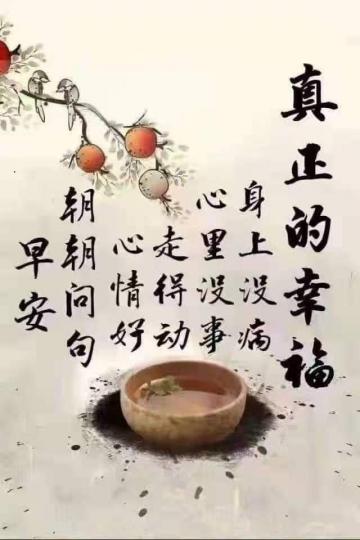 真正的幸福
身上没病
心里没事
走得动
心情好
朝朝问句
早安